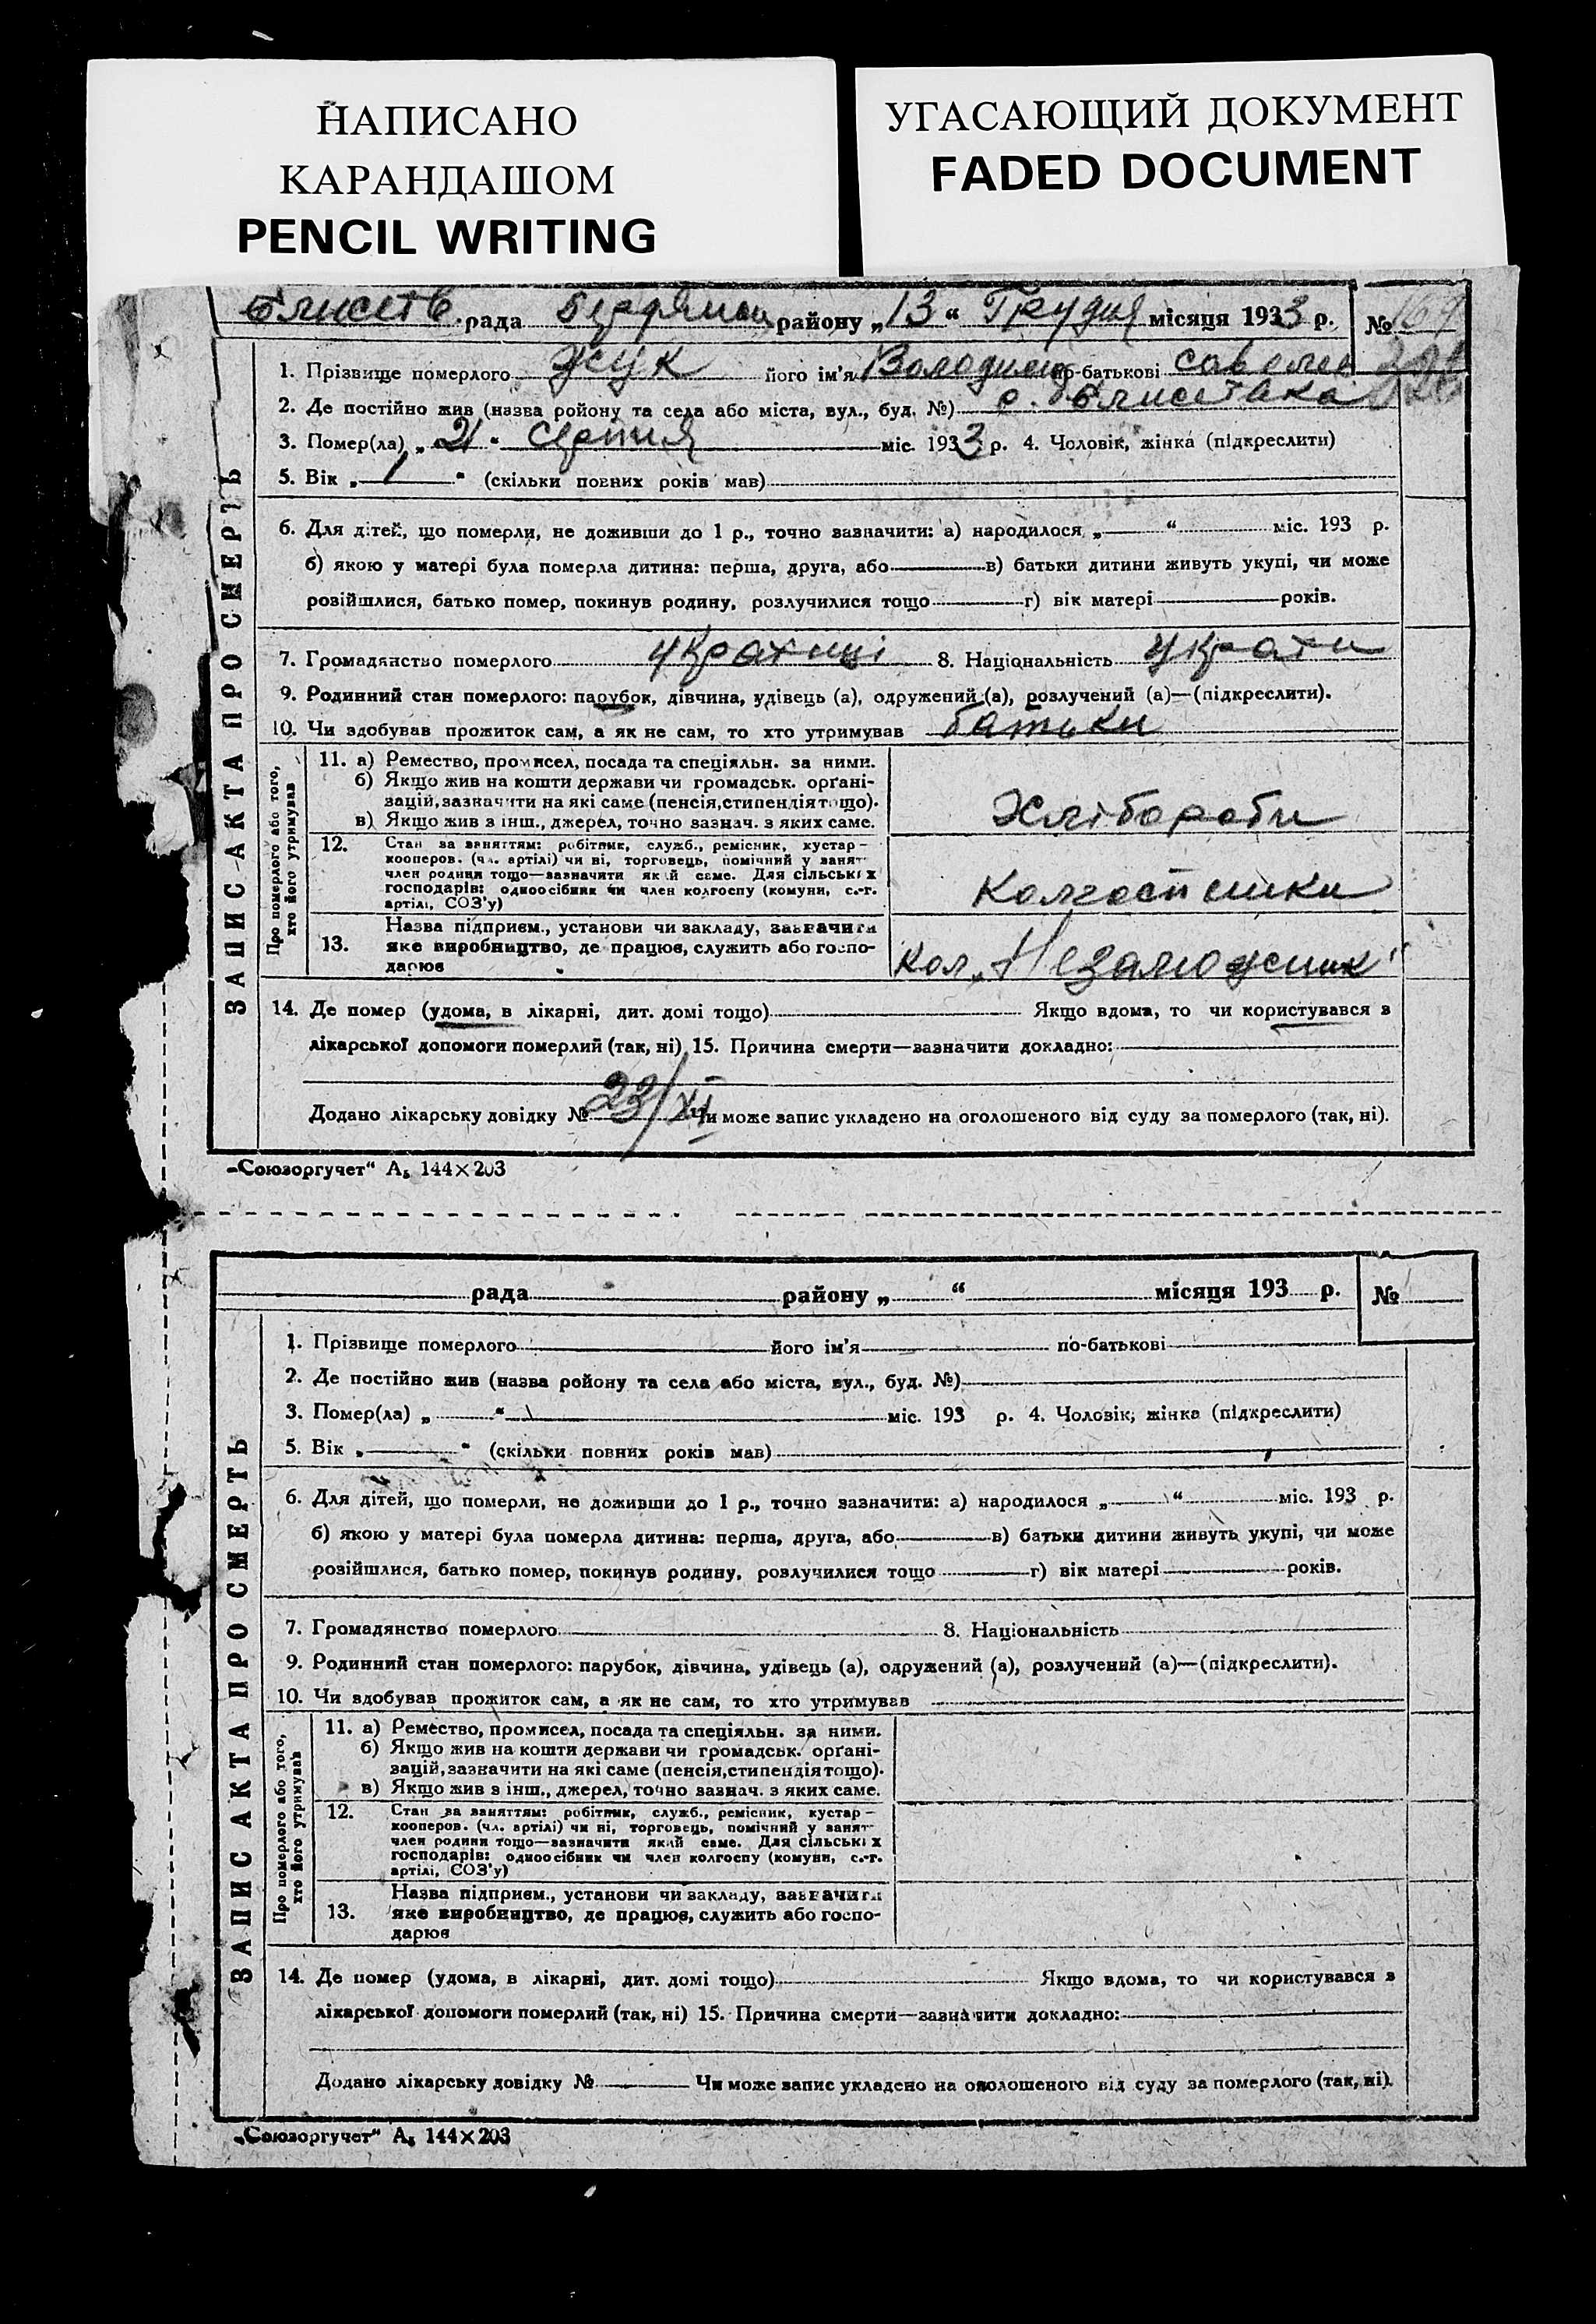 НАПИСАНО
КАРАНДАШОМ
PENCIL WRITING
УГАСАЮЩИЙ ДОКУМЕНТ
FADED DOCUMENT
Єлисетв. рада району „13“ Грудня місяця 1933 р. № 169
ЗАПИС АКТА ПРО СМЕРТЬ
1. Прізвище померлого Жук його ім'я Володимир по-батькові Савелев
2. Де постійно жив (назва ройону та села або міста, вул., буд. №) с.
3. Помер(ла) „21“ серпня міс. 1933 р. 4. Чоловік, жінка (підкреслити)
5. Вік „1“ (скільки повних років мав)
6. Для дітей, що померли, не доживши до 1 р., точно зазначити: а) народилося „ “ міс. 193 р.
б) якою у матері була померла дитина: перша, друга, або в) батьки дитини живуть укупі, чи може
розійшлися, батько помер, покинув родину, розлучилися тощо г) вік матері років.
7. Громадянство померлого 8. Національність
9. Родинний стан померлого: парубок, дівчина, удівець (а), одружений (а), розлучений (а)—(підкреслити).
10. Чи здобував прожиток сам, а як не сам, то хто утримував батьки
Про померлого або того,
хто його утримував
11. а) Ремество, промисел, посада та спеціяльн. за ними.
б) Якщо жив на кошти держави чи громадськ. орґані-
зацій, зазначити на які саме (пенсія, стипендія тощо).
в) Якщо жив з інш., джерел, точно зазнач. з яких саме.
Хлібороби
12. Стан за заняттям: робітник, служб., ремісник, кустар—
кооперов. (чл. артілі) чи ні, торговець, помічний у занят
член родини тощо—зазначити який саме. Для сільських
господарів: одноосібник чи член колгоспу (комуни, с.-г.
артілі, СОЗ'у)
Колгоспники
13. Назва підприєм., установи чи закладу, зазначити
яке виробництво, де працює, служить або госпо-
дарює
Кол. „Незаможник“
14. Де помер (удома, в лікарні, дит. домі тощо) Якщо вдома, то чи користувався з
лікарської допомоги померлий (так, ні) 15. Причина смерти—зазначити докладно:
Додано лікарську довідку № 23/XI Чи може запис укладено на оголошеного від суду за померлого (так, ні).
„Союзоргучет“ А₅ 144×203
рада району „ “ місяця 193 р. №
ЗАПИС АКТА ПРО СМЕРТЬ
1. Прізвище померлого його ім'я по-батькові
2. Де постійно жив (назва ройону та села або міста, вул., буд. №)
3. Помер(ла) „ “ міс. 193 р. 4. Чоловік, жінка (підкреслити)
5. Вік „ “ (скільки повних років мав)
6. Для дітей, що померли, не доживши до 1 р., точно зазначити: а) народилося „ “ міс. 193 р.
б) якою у матері була померла дитина: перша, друга, або в) батьки дитини живуть укупі, чи може
розійшлися, батько помер, покинув родину, розлучилися тощо г) вік матері років.
7. Громадянство померлого 8. Національність
9. Родинний стан померлого: парубок, дівчина, удівець (а), одружений (а), розлучений (а)—(підкреслити).
10. Чи здобував прожиток сам, а як не сам, то хто утримував
Про померлого або того,
хто його утримував
11. а) Ремество, промисел, посада та спеціяльн. за ними.
б) Якщо жив на кошти держави чи громадськ. орґані-
зацій, зазначити на які саме (пенсія, стипендія тощо).
в) Якщо жив з інш., джерел, точно зазнач. з яких саме.
12. Стан за заняттям: робітник, служб., ремісник, кустар—
кооперов. (чл. артілі) чи ні, торговець, помічний у занят
член родини тощо—зазначити який саме. Для сільських
господарів: одноосібник чи член колгоспу (комуни, с.-г.
артілі, СОЗ'у)
13. Назва підприєм., установи чи закладу, зазначити
яке виробництво, де працює, служить або госпо-
дарює
14. Де помер (удома, в лікарні, дит. домі тощо) Якщо вдома, то чи користувався з
лікарської допомоги померлий (так, ні) 15. Причина смерти—зазначити докладно:
Додано лікарську довідку № Чи може запис укладено на оголошеного від суду за померлого (так, ні).
„Союзоргучет“ А₅ 144×203